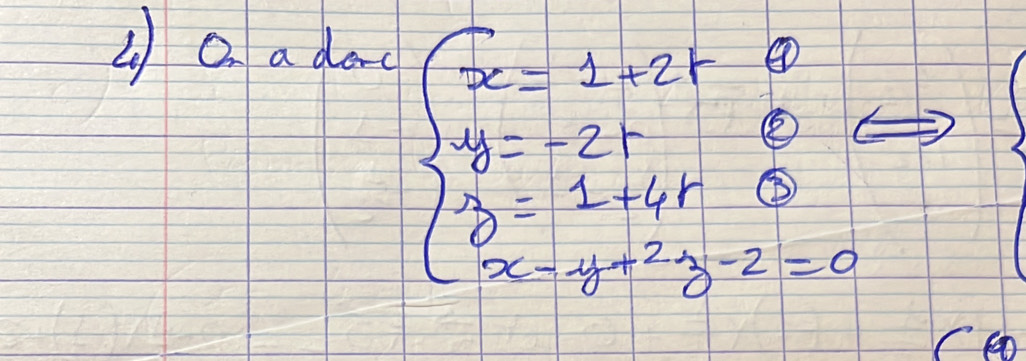 4) On a donc { x = 1 + 2r ①
y = -2r ② ⟺ {
z = 1 + 4r ③
x - y + 2z - 2 = 0